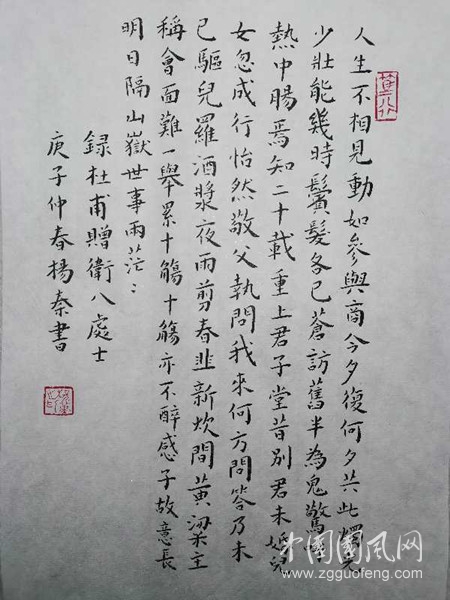 人生不相見動如參與商今夕復何夕共此燭光
少壯能幾時鬢髮各已蒼訪舊半為鬼驚呼
熱中腸焉知二十載重上君子堂昔別君未婚兒
女忽成行怡然敬父執問我來何方問答乃未
已驅兒羅酒漿夜雨剪春韭新炊間黃粱主
稱會面難一舉累十觴十觴亦不醉感子故意長
明日隔山嶽世事兩茫：
録杜甫贈衛八處士
庚子仲春楊秦書
中國國风网
www.zgguofeng.com